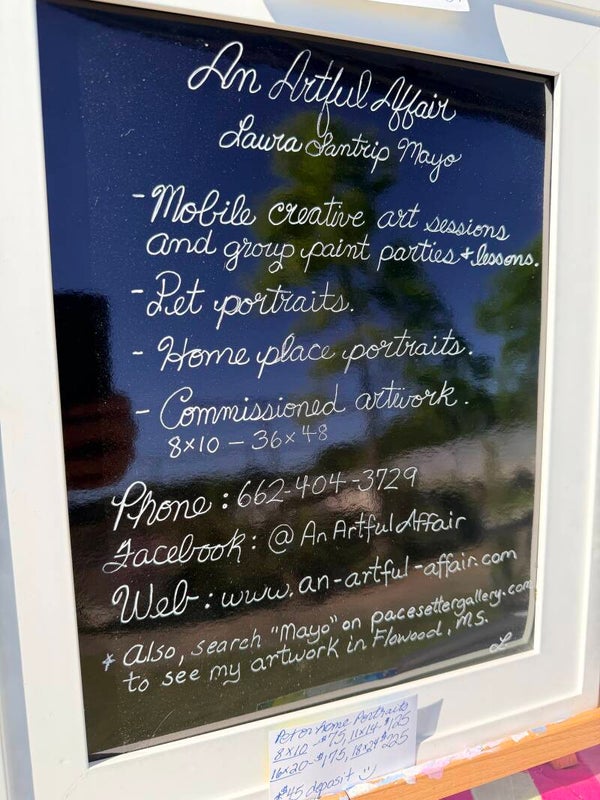 An Artful Affair
Laura Santrip Mayo
-Mobile creative art sessions
and group paint parties + lessons.
-Pet portraits.
- Home place portraits.
- Commissioned artwork.
8x10 - 36x48
Phone: 662-404-3729
Facebook: @ An Artful Affair
Web: www.an-artful-affair.com
* Also, search "Mayo" on pacesettergallery.com
to see my artwork in Flowood, MS.
L
Pet or Home Portraits
8x10 - $75, 11x14 - $125
16x20 - $175, 18x24 $225
*$45 deposit